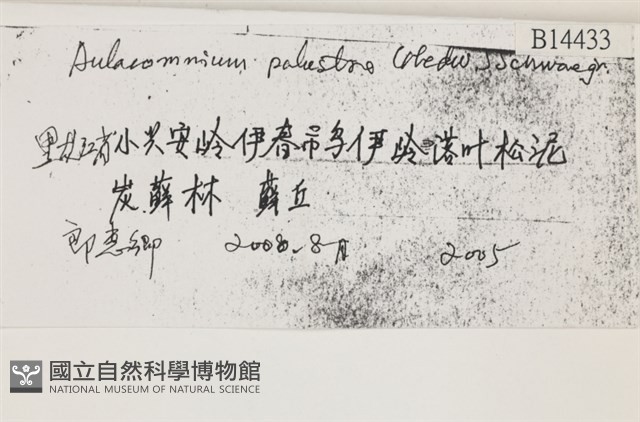 B14433
Aulacomnium palustre (Hedw.) Schwaegr.
黑龙江省小兴安岭伊春市乌伊岭落叶松泥
炭藓林 藓丘
郎惠卿 2000.8月 2005
國立自然科學博物館
NATIONAL MUSEUM OF NATURAL SCIENCE